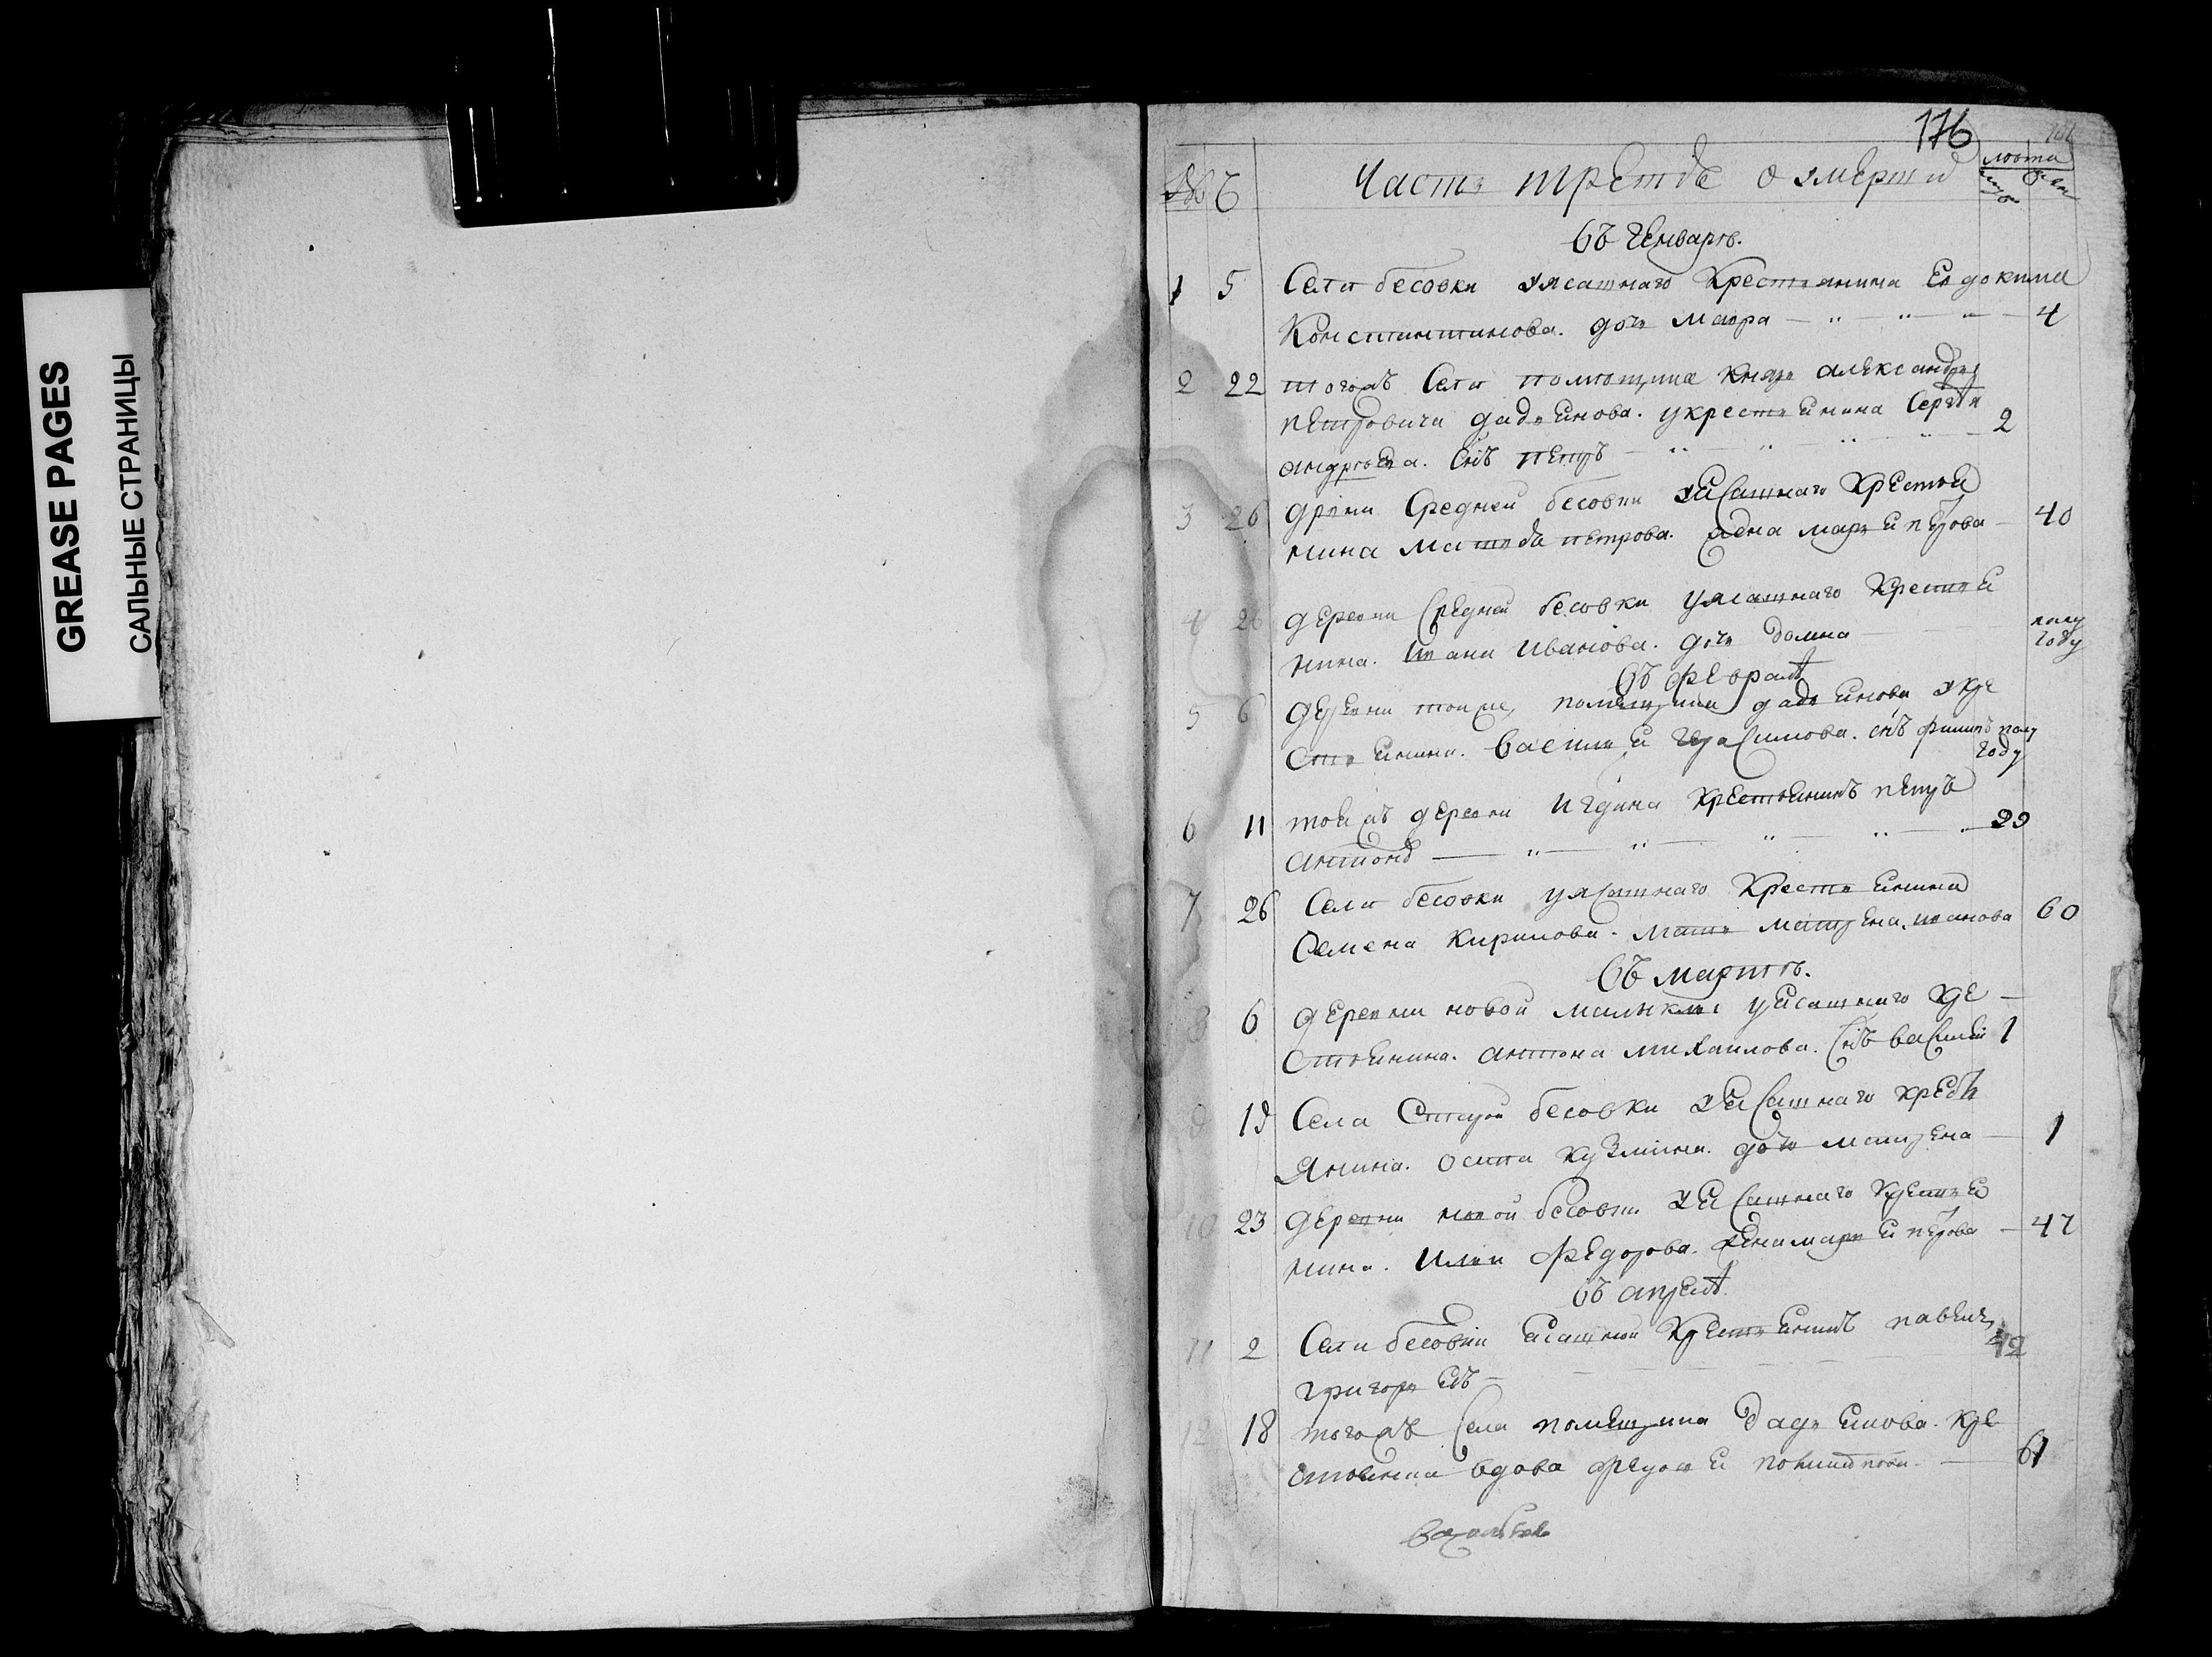 GREASE PAGES
САЛЬНЫЕ СТРАНИЦЫ
176
Часть третья о умерши
лѣта
въ генварѣ.
1 5 Села бесовки уясашнаго Крестьянина Евдокима
Константинова. дочь Мавра 4
2 22 тогожъ Села помющика князя александра
петровича дадьянова. укрестьянина Сергѣя
андрѣева. Снъ петръ 2
3 26 дрвни Средней бесовки уясашнаго Крестья
нина Матвѣя петрова. жена марья петрова 40
4 26 деревни Средней бесовки уясашнаго Крестья
нина. Ивана Иванова. дочь домна полу
году
въ февралѣ
5 6 деревни тоиже, помещика дадьянова укре
стьянина. Василья Герасимова. снъ филипъ полу
году
6 11 тоижъ деревни Крестьянинъ петръ
антоновъ 29
7 26 Села бесовки уясашнаго Крестьянина
Семена Кирилова. мать матрена иванова 60
въ мартѣ.
8 6 деревни новой малыклы уясашнаго кре
стьянина. антона михаилова. Снъ василей 1
9 19 Села Старой бесовки уясашнаго кресть
янина. осипа кузмина. дочь матрена 1
10 23 деревни новой бесовки уясашнаго крестья
нина. Ильи федорова. жена марья петрова 47
въ апрелѣ
11 2 Села бесовки ясашной Крестьянинъ павелъ
григорьевъ 42
12 18 тогожъ села помещика дадьянова. кре
стьянина вдова федосья 61